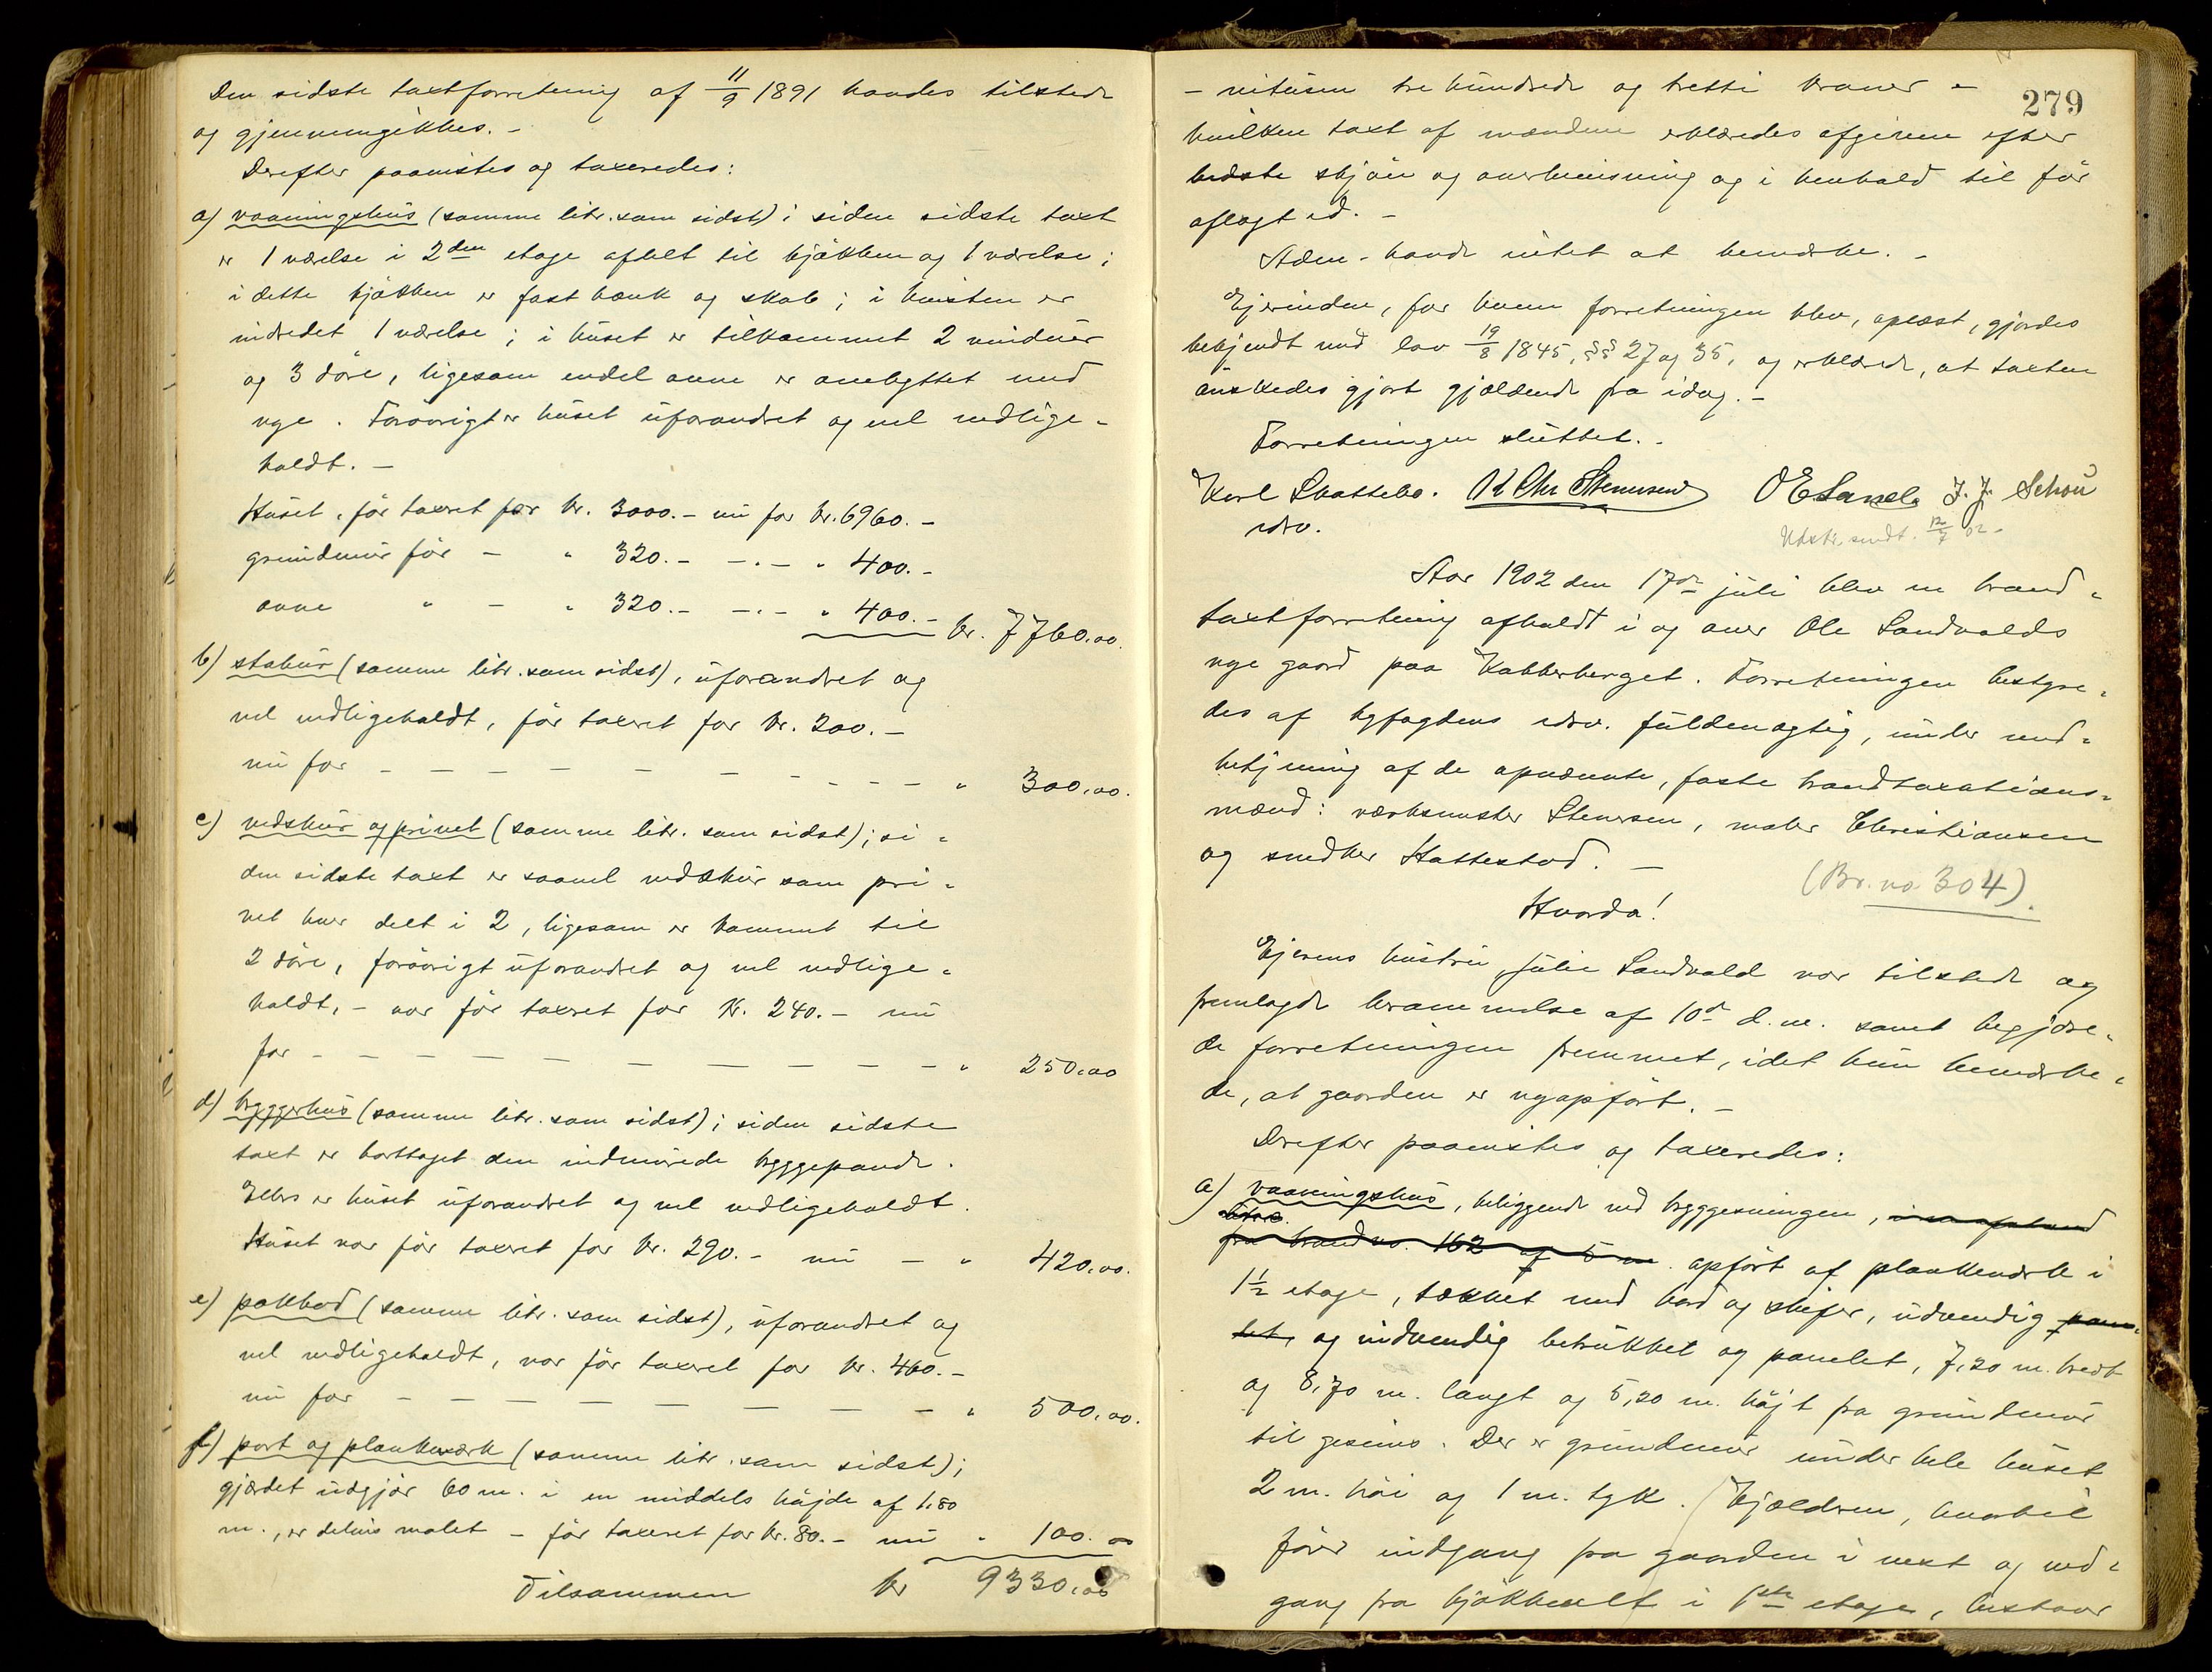 Den sidste taxtforretning af 11/9 1891 havdes tilstede
og gjennemgikkes. -
Derefter paavistes og taxeredes:
a) vaaningshus (samme litr. som sidst); siden sidste taxt
er 1 værelse i 2den etage afdelt til kjøkken og 1 værelse;
i dette kjøkken er fast bænk og skab; i kvisten er
indredet 1 værelse; i huset er tilkommet 2 vinduer
og 3 døre, ligesom endel ovne er ombyttet med
nye. Forøvrigt er huset uforandret og vel vedlige-
holdt. -
Huset, før taxeret for kr. 3000.- nu for kr. 6960.-
grundmur før - " 320.- -"- " 400.-
ovne " - " 320.- -"- " 400.- kr. 7760.00.
b) stabur (samme litr. som sidst), uforandret og
vel vedligeholdt, før taxeret for kr. 200.-
nu for - - - - - - - - - - " 300.00.
c) vedskur og privet (samme litr. som sidst); si-
den sidste taxt er saavel vedskur som pri-
vet hver delt i 2, ligesom er kommet til
2 døre, forøvrigt uforandret og vel vedlige-
holdt, - var før taxeret for Kr. 240.- nu
for - - - - - - - - - - " 250.00
d) bryggerhus (samme litr. som sidst); siden sidste
taxt er borttaget den indmurede bryggepande.
Ellers er huset uforandret og vel vedligeholdt.
Huset var før taxeret for kr. 290.- nu - " 420.00.
e) pakbod (samme litr. som sidst), uforandret og
vel vedligeholdt, var før taxeret for kr. 460.-
nu for - - - - - - - - - " 500.00.
f) port og plankeværk (samme litr. som sidst);
gjærdet udgjør 60 m. i en middels højde af 1,80
m., er delvis malet - før taxeret for kr. 80.- nu " 100.00
Tilsammen kr 9330.00
279
- nitusen tre hundrede og tretti kroner -
hvilken taxt af mændene erklæredes afgiven efter
bedste skjøn og overbevisning og i henhold til før
aflagt ed. -
Æden. havde intet at bemærke. -
Ejerinden, for hvem forretningen blev, oplæst, gjordes
bekjendt med lov 19/8 1845, §§ 27 og 35, og erklærede, at taxten
ønskedes gjort gjældende fra idag. -
Forretningen sluttet. -
Karl Skattebo. K Chr Stenersen O E Sand J. J. Schou
edsv.
Udskr. sendt. 12/7 02 -
Aar 1902 den 17de juli blev en brand-
taxtforretning afholdt i og over Ole Sandvolds
nye gaard paa Kobberberget. Forretningen bestyre-
des af byfogdens edsv. fuldmægtig, under med-
betjening af de opnævnte, faste brandtaxations-
mænd: værksmester Stenersen, maler Christiansen
og snedker Hattestad. -
(Br. no 304).
Hvorda!
Ejerens hustru, Julie Sandvold var tilstede og
fremlagde berammelse af 10de d.m. samt begjære-
de forretningen fremmet, idet hun bemærke-
de, at gaarden er nyopført. -
Derefter paavistes og taxeredes:
a) vaaningshus, beliggende ved bryggesvingen, i en afstand
fra brand no. 162 af 5 m. opført af plankeværk i
1½ etage, tækket med bord og skifer, udvendig pane-
let, og indvendig betrukket og panelet, 7,20 m. bredt
og 8,70 m. langt og 5,20 m. højt fra grundmur
til gesims. Der er grundmur under hele huset
2 m. høi og 1 m. tyk. Kjælderen, hvortil
fører indgang fra gaarden i vest og ned-
gang fra kjøkkenet i 1ste etage, bestaar